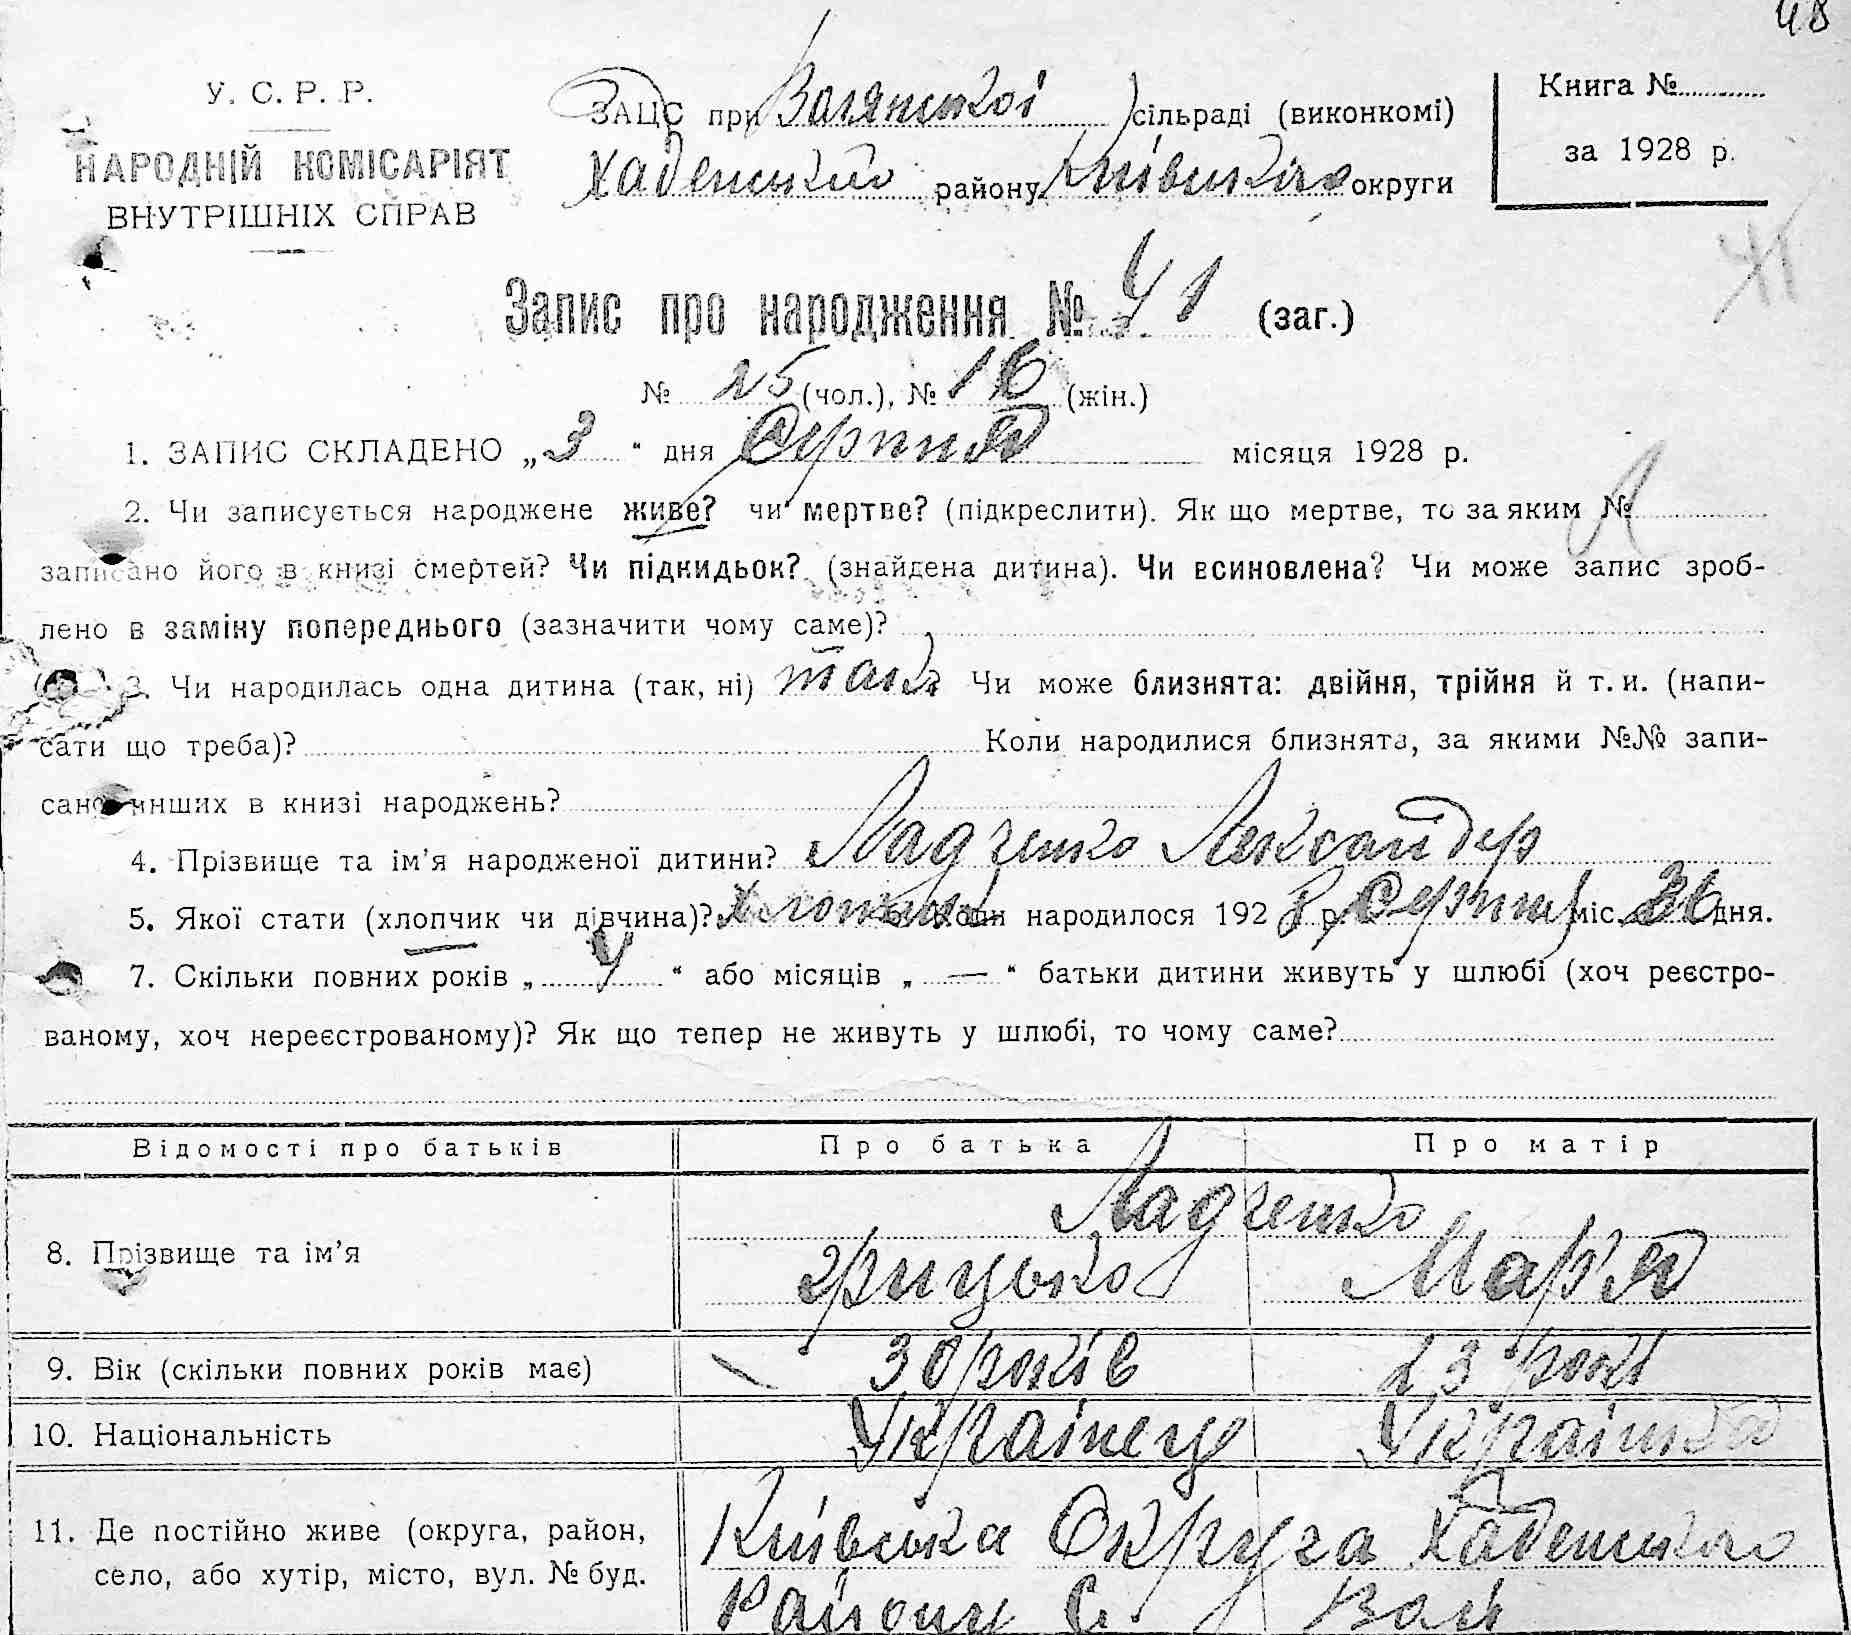 48
У. С. Р. Р.
НАРОДНІЙ КОМІСАРІЯТ
ВНУТРІШНІХ СПРАВ
ЗАЦС при сільраді (виконкомі)
району Київської округи
Книга №
за 1928 р.
41
Запис про народження № 41 (заг.)
№ 25 (чол.), № 16 (жін.)
1. ЗАПИС СКЛАДЕНО „ 3 “ дня Серпня місяця 1928 р.
2. Чи записується народжене живе? чи мертве? (підкреслити). Як що мертве, то за яким №
записано його в книзі смертей? Чи підкидьок? (знайдена дитина). Чи всиновлена? Чи може запис зроб-
лено в заміну попереднього (зазначити чому саме)?
3. Чи народилась одна дитина (так, ні) так Чи може близнята: двійня, трійня й т. и. (напи-
сати що треба)? Коли народилися близнята, за якими №№ запи-
сано инших в книзі народжень?
4. Прізвище та ім’я народженої дитини? Ладченко Лександер
5. Якої стати (хлопчик чи дівчина)? Хлопчик Коли народилося 192 8 р. Серпня міс. дня.
7. Скільки повних років „ 4 “ або місяців „ — “ батьки дитини живуть у шлюбі (хоч реєстро-
ваному, хоч нереєстрованому)? Як що тепер не живуть у шлюбі, то чому саме?
Відомості про батьків Про батька Про матір
Ладченко
8. Прізвище та ім’я Грицько Мар'я
9. Вік (скільки повних років має) 30 років 23 роки
10. Національність Українець Українка
11. Де постійно живе (округа, район, Київська Округа
село, або хутір, місто, вул. № буд. Району С.